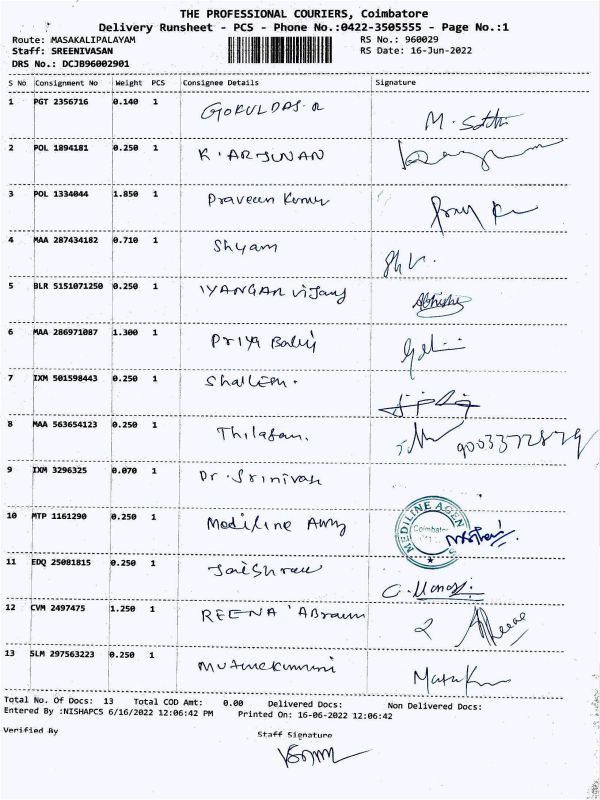 THE PROFESSIONAL COURIERS, Coimbatore
Delivery Runsheet - PCS - Phone No.:0422-3505555 - Page No.:1
Route: MASAKALIPALAYAM RS No.: 960029
Staff: SREENIVASAN RS Date: 16-Jun-2022
DRS No.: DCJB96002901
S No Consignment No Weight PCS Consignee Details Signature
1 PGT 2356716 0.140 1 GOKULDAS.R
M.
2 POL 1894181 0.250 1 K.ARJUNAN
3 POL 1334044 1.850 1 Praveen Kumar
4 MAA 287434182 0.710 1 Shyam
5 BLR 5151071250 0.250 1 IYANGAR
6 MAA 286971087 1.300 1 Priya
7 IXM 501598443 0.250 1
8 MAA 563654123 0.250 1 Thilagan. 9003372879
9 IXM 3296325 0.070 1 Dr. Srinivasan
10 MTP 1161290 0.250 1 Mediline MEDILINE AGEN
Coimbatore
11 EDQ 25081815 0.250 1 C.
12 CVM 2497475 1.250 1 REENA ABraham
13 SLM 297563223 0.250 1
Total No. Of Docs: 13 Total COD Amt: 0.00 Delivered Docs: Non Delivered Docs:
Entered By :NISHAPCS 6/16/2022 12:06:42 PM Printed On: 16-06-2022 12:06:42
Verified By Staff Signature